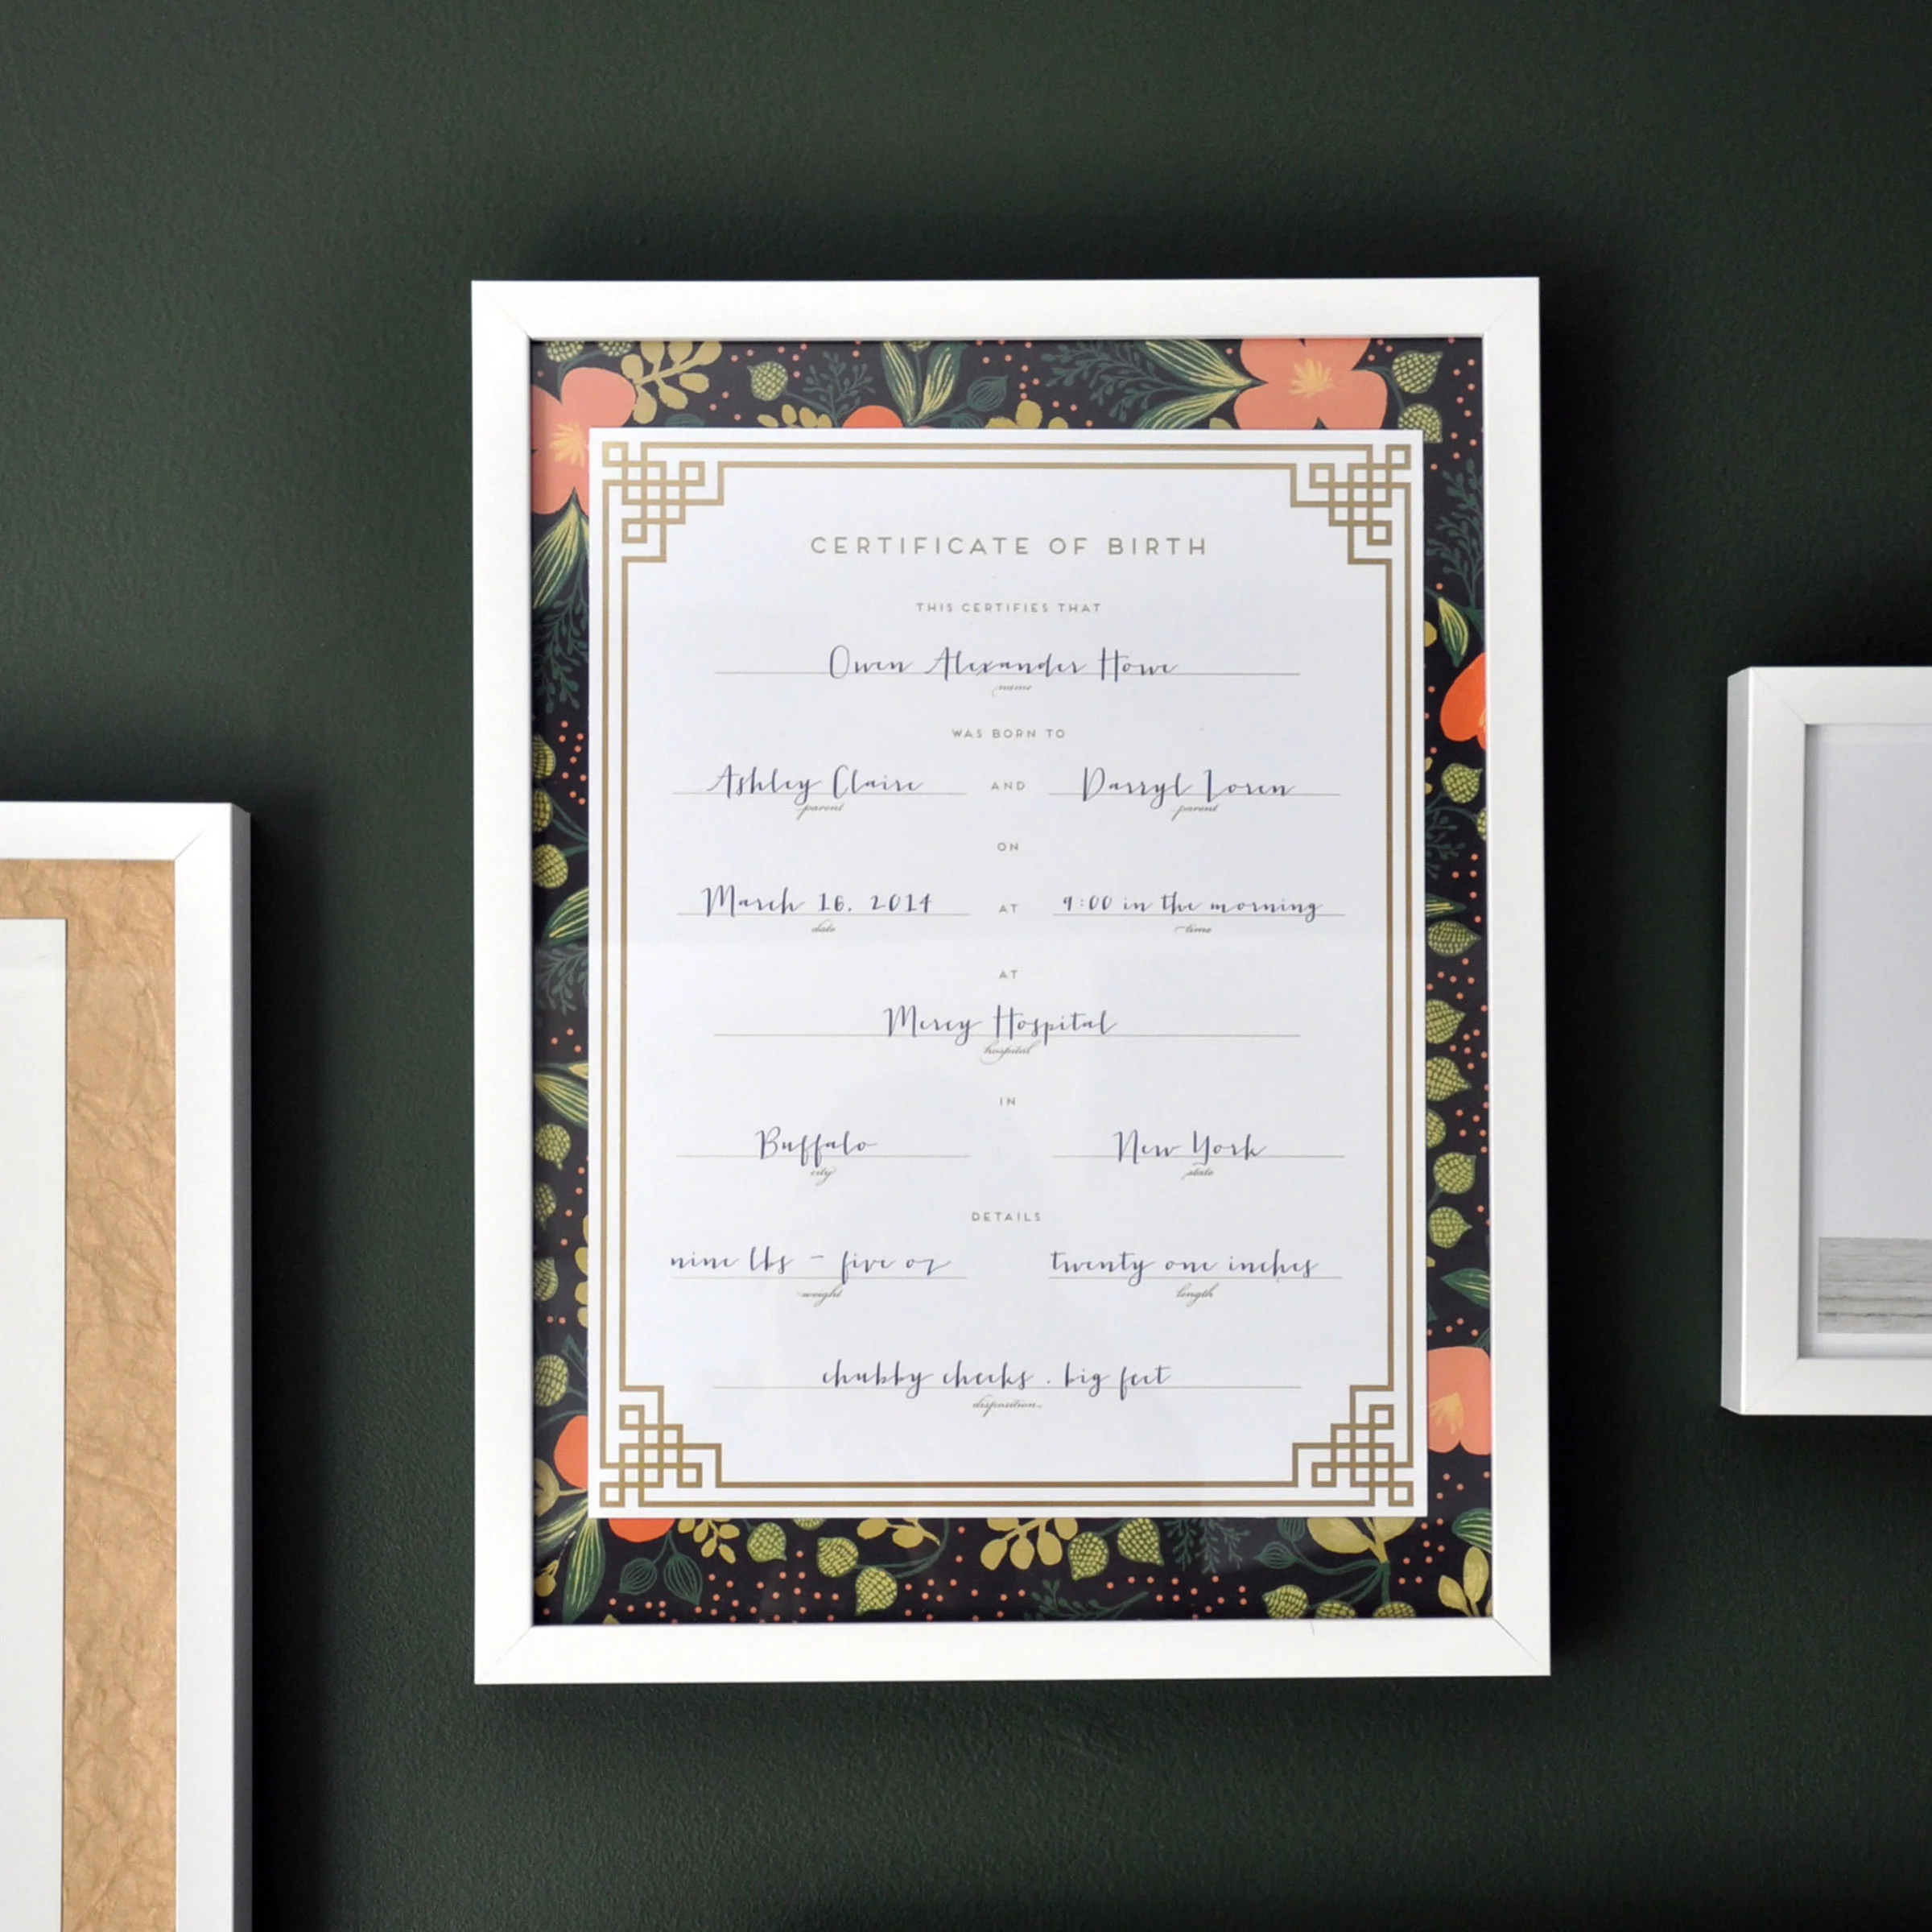 CERTIFICATE OF BIRTH
THIS CERTIFIES THAT
Owen Alexander Howe
name
WAS BORN TO
Ashley Claire AND Darryl Loren
parent parent
ON
March 16, 2014 AT 9:00 in the morning
date time
AT
Mercy Hospital
hospital
IN
Buffalo New York
city state
DETAILS
nine lbs - five oz twenty one inches
weight length
chubby cheeks . big feet
disposition